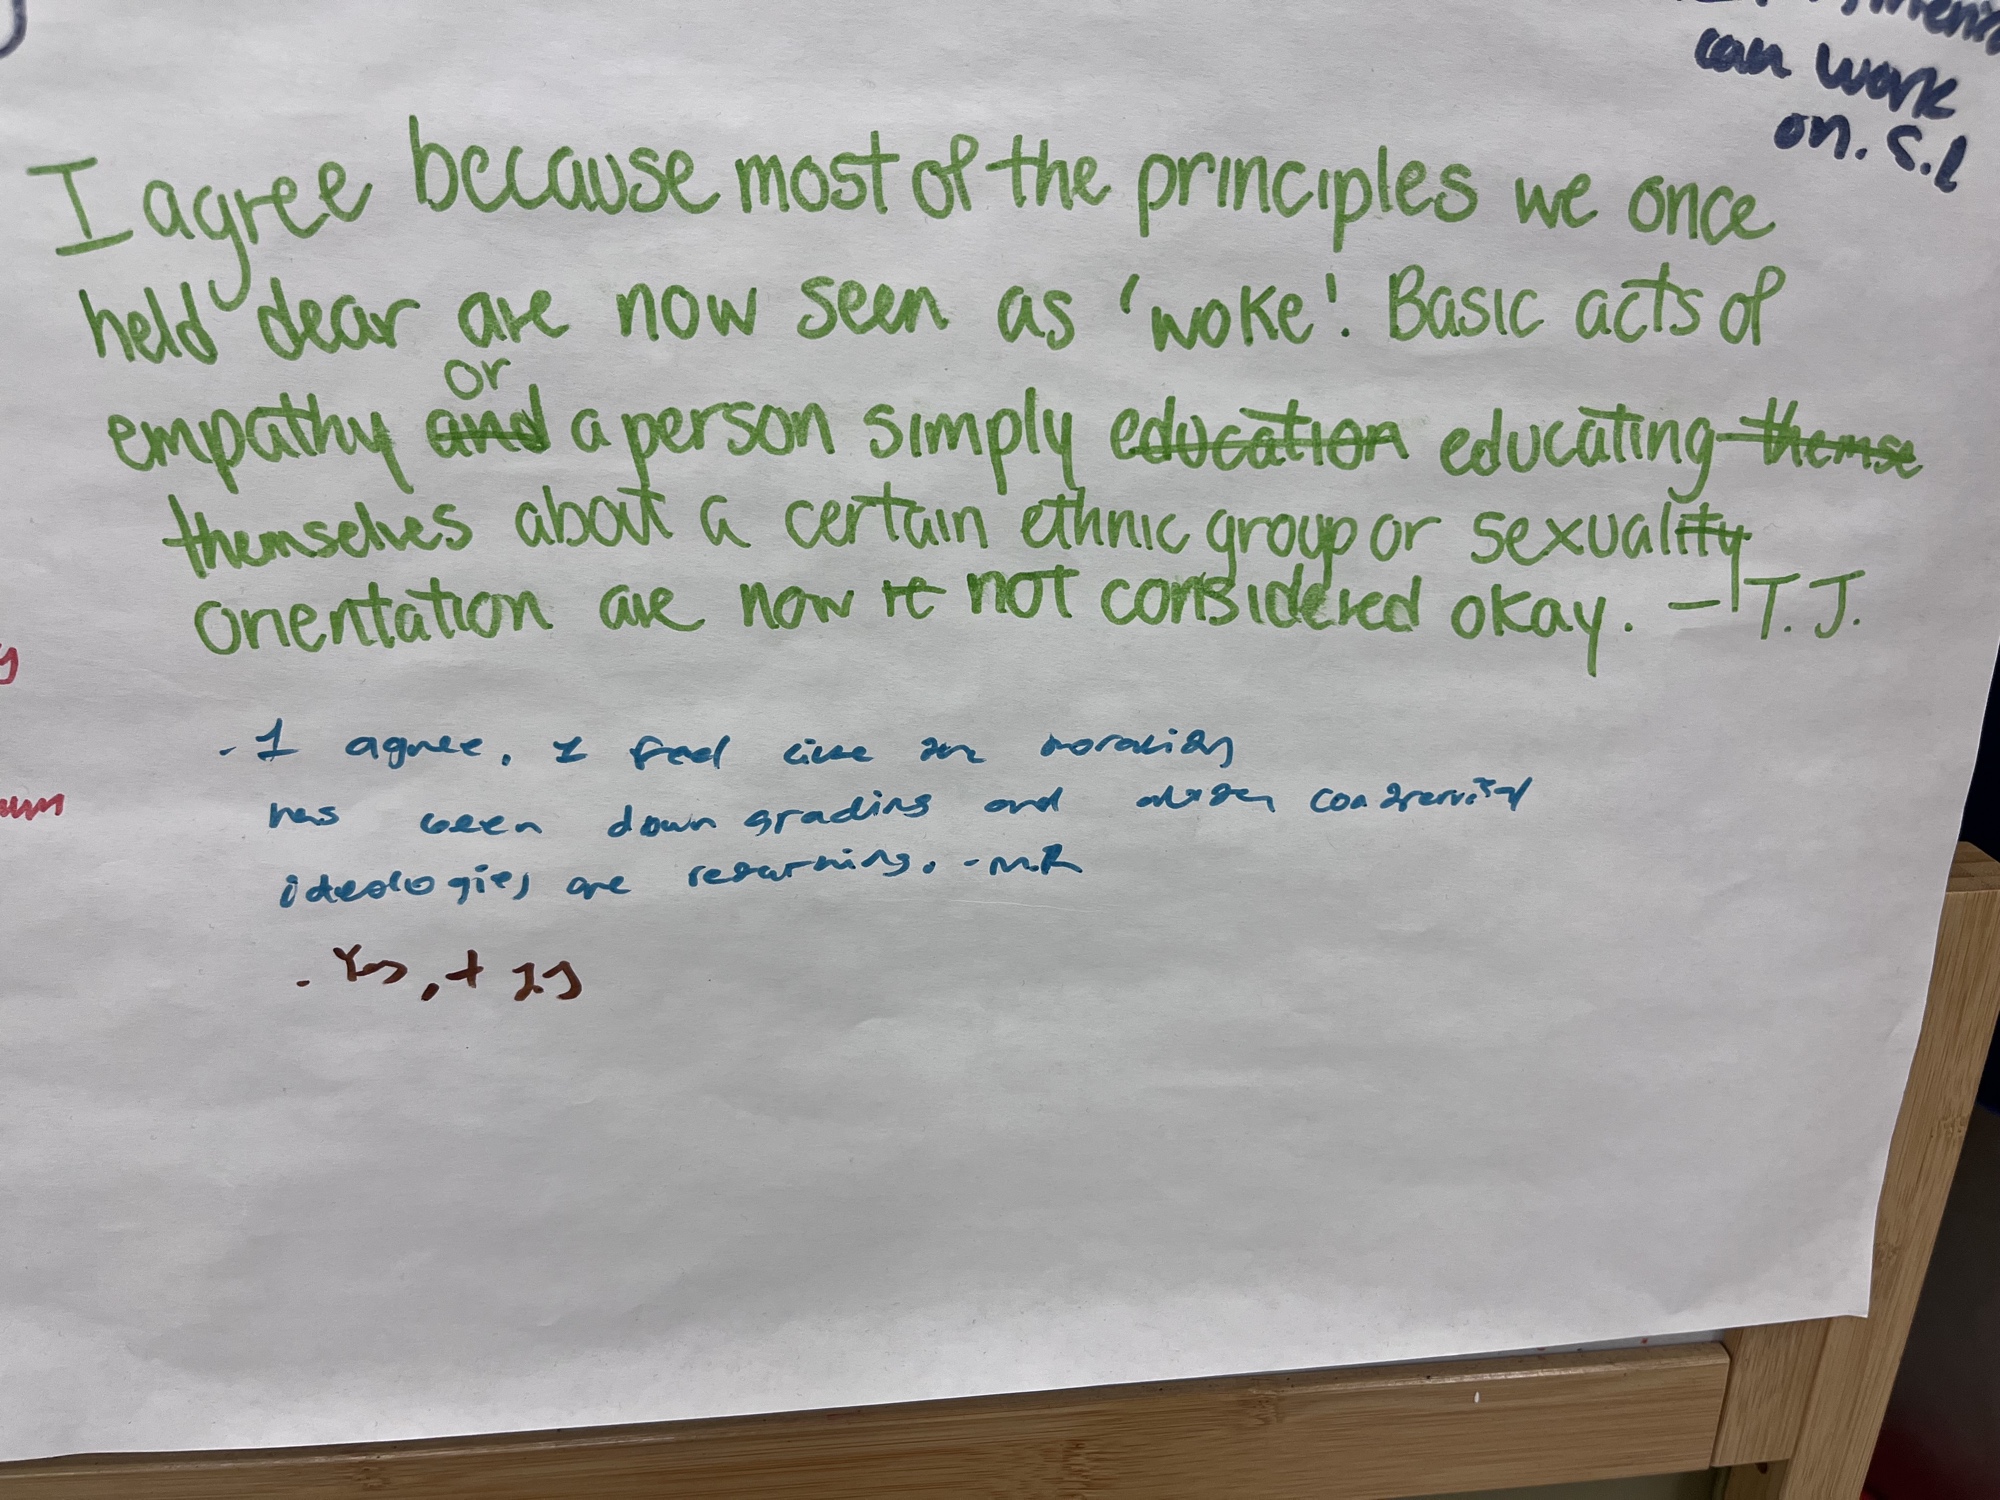 can work
on. S.L
I agree because most of the principles we once
held dear are now seen as 'woke'. Basic acts of
or
empathy and a person simply education educating themse
themselves about a certain ethnic group or sexuality
orientation are now it not considered okay. - T.J.
- I agree, I feel like the morality
has been down grading and conservitol
ideologies are returning. - M.R
- Yes, +